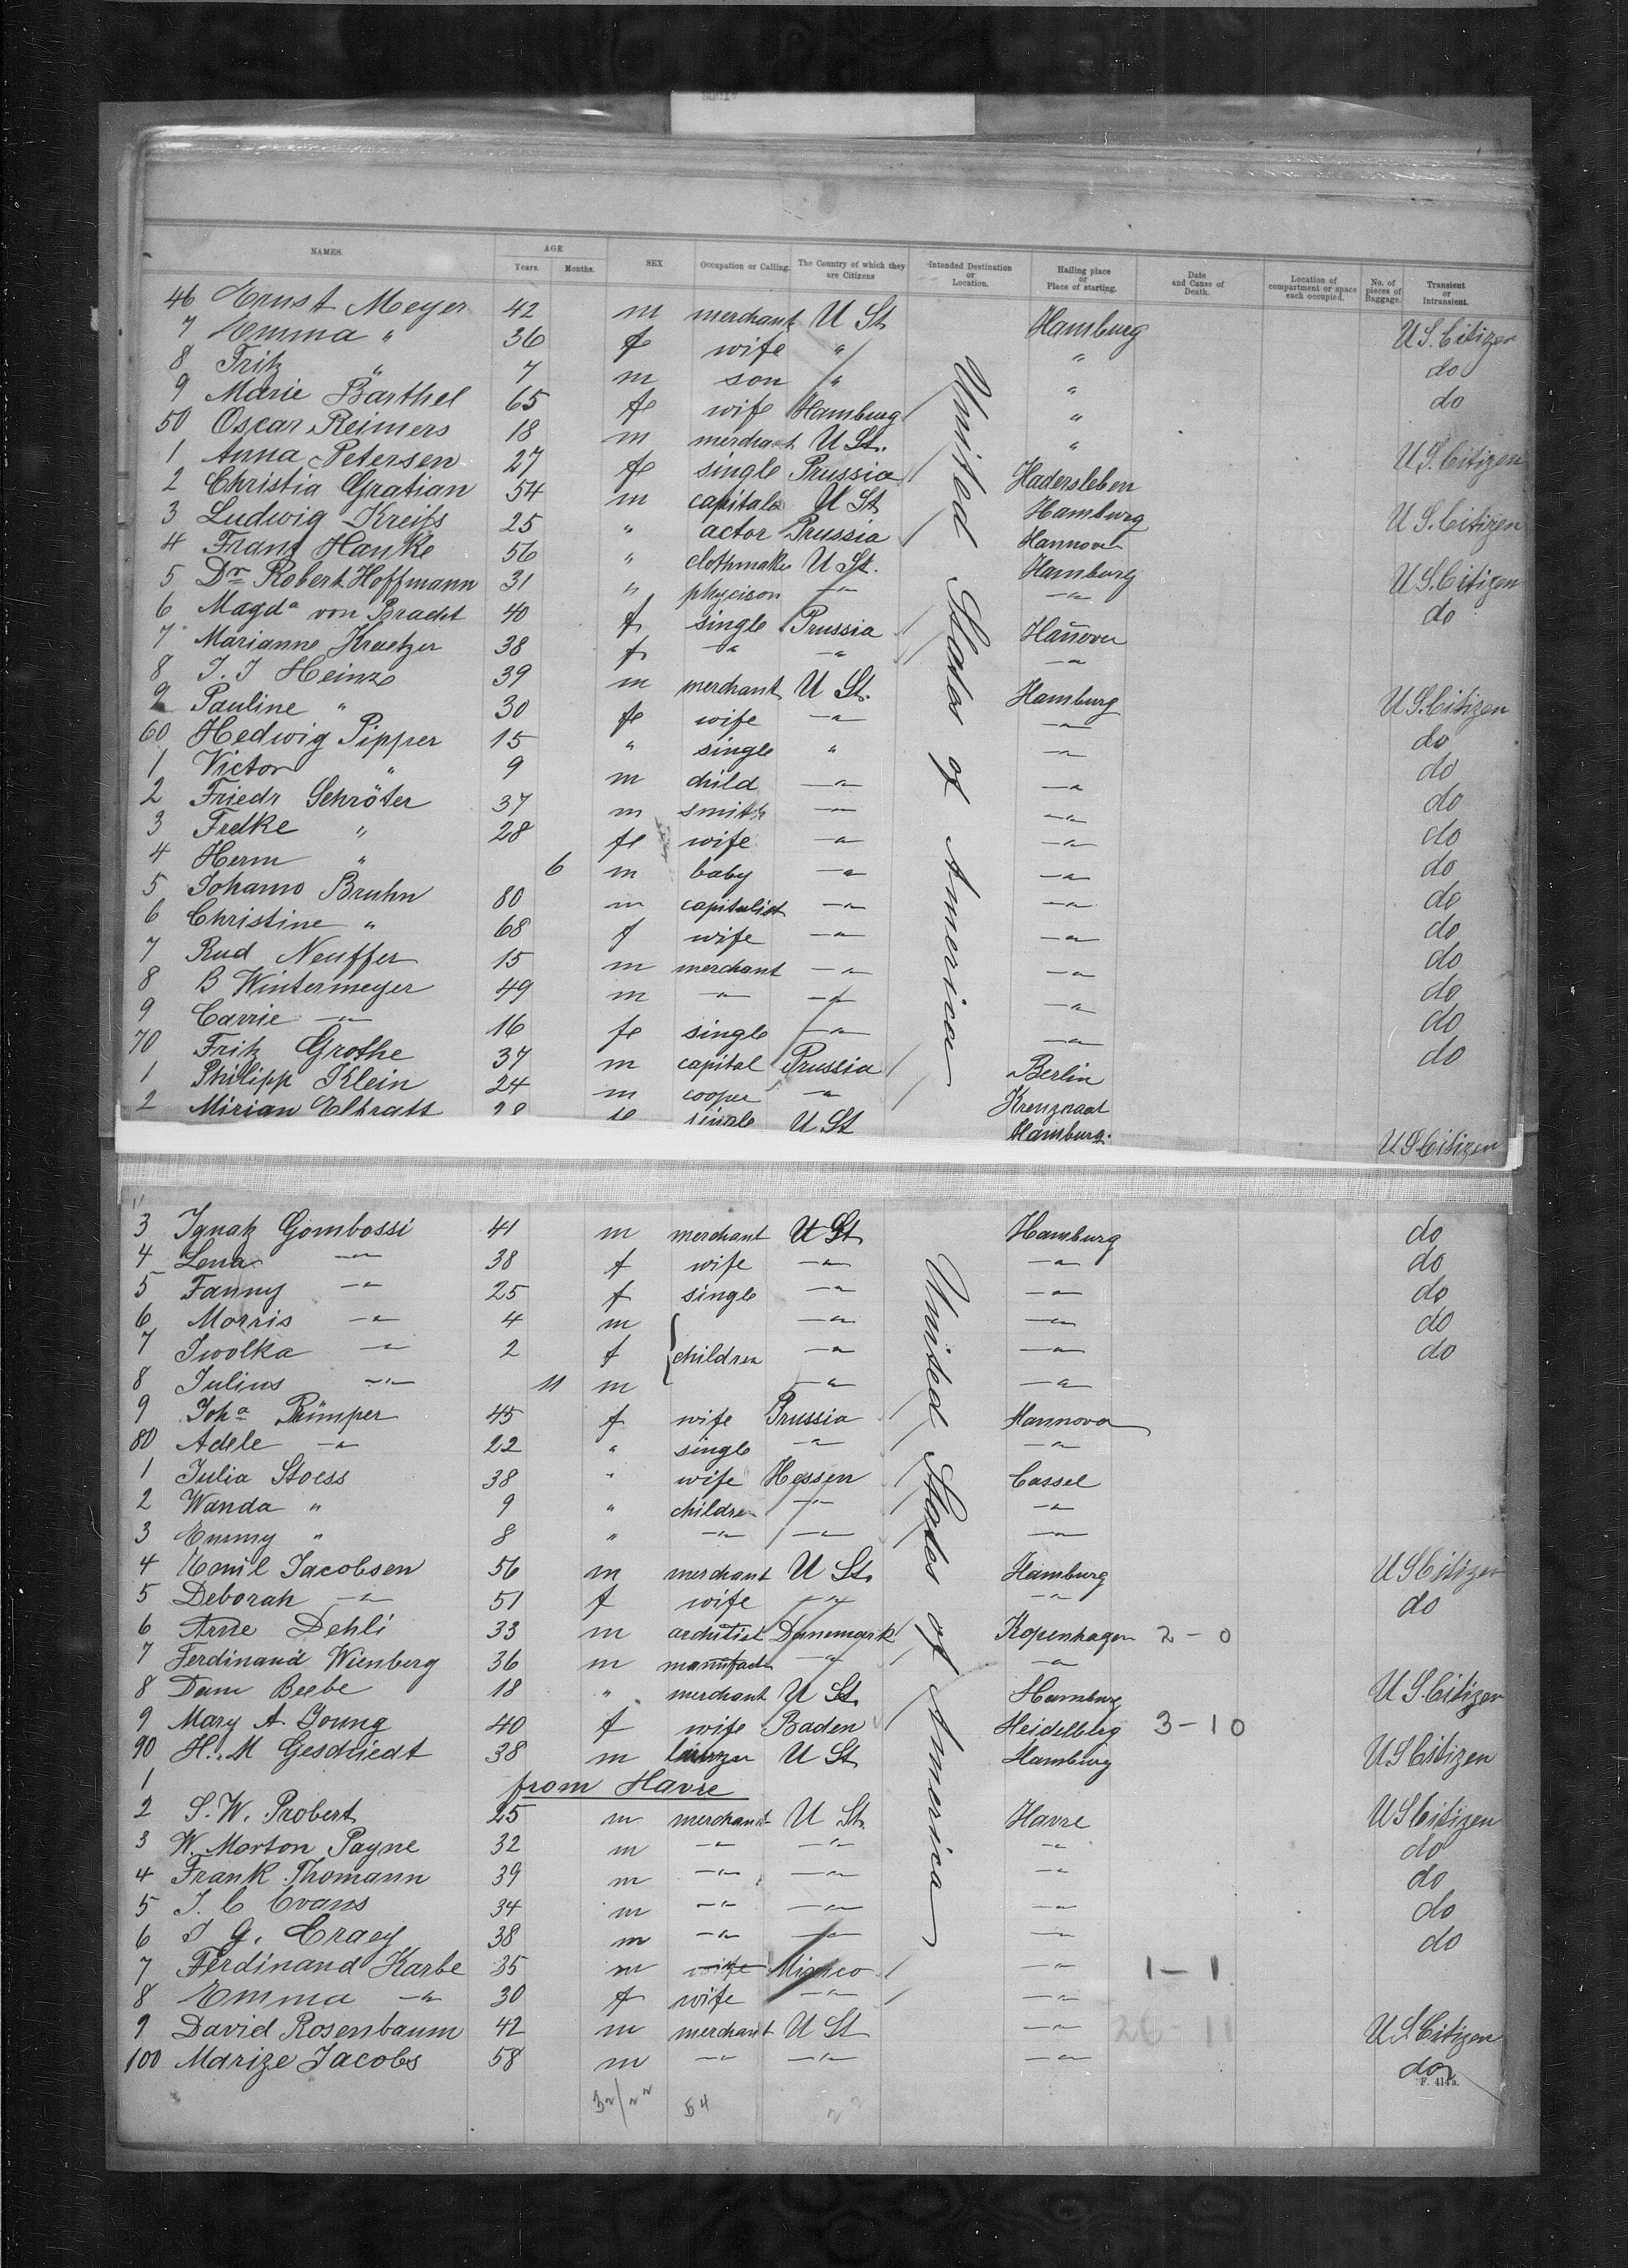 NAMES. AGE SEX Occupation or Calling. The Country of which they are Citizens Intended Destination or Location. Hailing place or Place of starting. Date and Cause of Death. Location of compartment or space each occupied. No. of pieces of Baggage. Transient or Intransient.
Years. Months.
46 Ernst Meyer 42 m merchant U St Hamburg U S. Citizen
7 Emma " 36 fe wife " " do
8 Fritz " 7 m son " " do
9 Marie Barthel 65 fe wife Hamburg / "
50 Oscar Reimers 18 m merchant U St. " U S. Citizen
1 Anna Petersen 27 fe single Prussia / Hadersleben
2 Christia Gratian 54 m capitals U St Hamburg U S. Citizen
3 Ludwig Kreifs 25 " actor Prussia / Hannover
4 Franz Hanke 56 " clothmaker U St. Hamburg U S. Citizen
5 Dr Robert Hoffmann 31 " phycison —"— —"— do
6 Magda von Bracht 40 f single Prussia / Hannover
7 Marianne Kraetzer 38 f —"— —"— / —"—
8 J. J Heinze 39 m merchant U St. Hamburg U S. Citizen
9 Pauline " 30 fe wife —"— —"— do
60 Hedwig Pipper 15 " single " —"— do
1 Victor " 9 m child —"— —"— do
2 Friedr Schröter 37 m smith —"— —"— do
3 Frelke " 28 fe wife —"— —"— do
4 Herm " 6 m baby —"— —"— do
5 Johanno Bruhn 80 m capitalist —"— —"— do
6 Christine " 68 f wife —"— —"— do
7 Rud Neuffer 15 m merchant —"— —"— do
8 B Wintermeyer 49 m —"— —"— —"— do
9 Carrie —"— 16 fe single —"— —"— do
70 Fritz Grothe 37 m capital Prussia / Berlin
1 Philipp Klein 24 m cooper —"— / Kreuznaat
2 Mirian Elkratt 28 fe single U St Hamburg. U S Citizen
United States of America
3 Ignatz Gombossi 41 m merchant U St Hamburg do
4 Lena —"— 38 f wife —"— —"— do
5 Fanny —"— 25 f single —"— —"— do
6 Morris —"— 4 m —"— —"— do
7 Iwolka —"— 2 f children —"— —"— do
8 Julius —"— 11 m —"— —"—
9 Joha Pümper 45 f wife Prussia / Hannover
80 Adele —"— 22 " single —"— / —"—
1 Julia Stoess 38 " wife Hessen / Cassel
2 Wanda " 9 " children —"— / —"—
3 Emmy " 8 " —"— —"— / —"—
4 Emil Jacobsen 56 m merchant U St. Hamburg U S Citizen
5 Deborah —"— 51 f wife —"— —"— do
6 Arne Dehli 33 m architect Danemark / Kopenhagen 2 - 0
7 Ferdinand Wienberg 36 m manufact —"— / —"—
8 Dam Beebe 18 " merchant U St. Hamburg U S. Citizen
9 Mary A. Young 40 f wife Baden / Heidelberg 3 - 10
90 H. M Gesdhiedt 38 m U St Hamburg U S Citizen
1 from Havre
2 S. W. Probert 25 m merchant U St. Havre U S Citizen
3 W. Morton Payne 32 m —"— —"— —"— do
4 Frank Thomann 39 m —"— —"— —"— do
5 J. C Evans 34 m —"— —"— —"— do
6 J G. Craey 38 m —"— —"— —"— do
7 Ferdinand Karbe 35 m wife / —"— 1 - 1
8 Emma —"— 30 f wife —"— / —"—
9 David Rosenbaum 42 m merchant U St —"— 26 - 11 U S. Citizen
100 Marize Jacobs 58 m —"— —"— —"— do
United States of America
F. 414a.
54